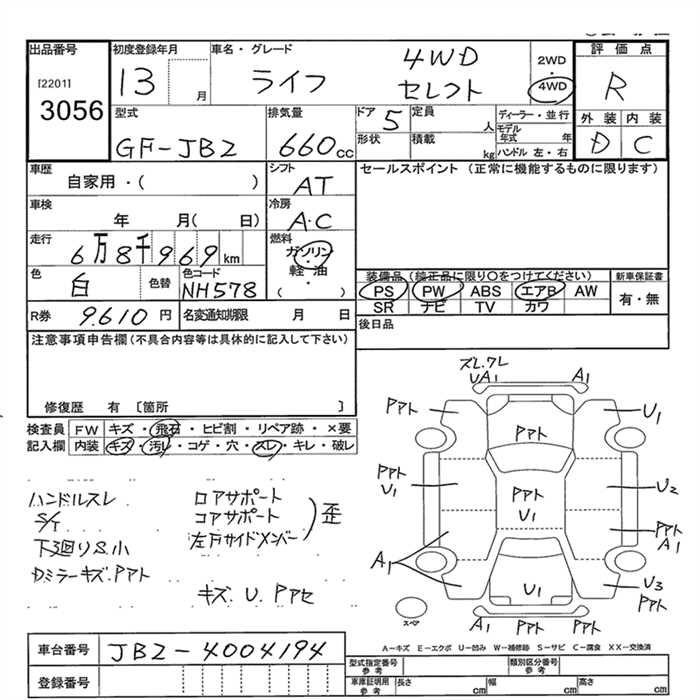 出品番号
[2201]
3056
初度登録年月
13 月
車名・グレード
ライフ
4WD
セレクト
2WD
・
4WD
評価点
R
外装 内装
D C
型式
GF-JB2
排気量
660cc
ドア 5
形状
定員 人
積載 kg
ディーラー・並行
モデル年式 年
ハンドル 左・右
車歴
自家用・( )
シフト
AT
車検
年 月( 日)
冷房
A・C
走行
6万8千969km
燃料
ガソリン
・
軽油
・
( )
色 白 色替
色コード
NH578
R券 9.610 円
名変通知期限 月 日
セールスポイント (正常に機能するものに限ります)
装備品(純正品に限り○をつけてください)
PS PW ABS エアB AW
SR ナビ TV カワ
新車保証書
有・無
後日品
注意事項申告欄(不具合内容等は具体的に記入して下さい)
修復歴 有 〔箇所 〕
検査員 FW キズ・飛石・ヒビ割・リペア跡・×要
記入欄 内装 キズ・汚レ・コゲ・穴・スレ・キレ・破レ
ハンドルスレ
S/T
下廻りS.小
Dミラーキズ.Pアト
ロアサポート
コアサポート
左右サイドメンバー
歪
キズ U. Pアセ
ズレ.ワレ
UA1
A1
Pアト
U1
Pアト
Pアト
U1
Pアト
U1
U2
Pアト
A1
A1
U1
U3
Pアト
A1
Pアト
Pアト
スペア
A－キズ E－エクボ U－凹み W－補修跡 S－サビ C－腐食 XX－交換済
車台番号 JB2-4004194
登録番号
型式指定番号
参考
類別区分番号
参考
車庫証明用
参考
長さ cm
幅 cm
高さ cm